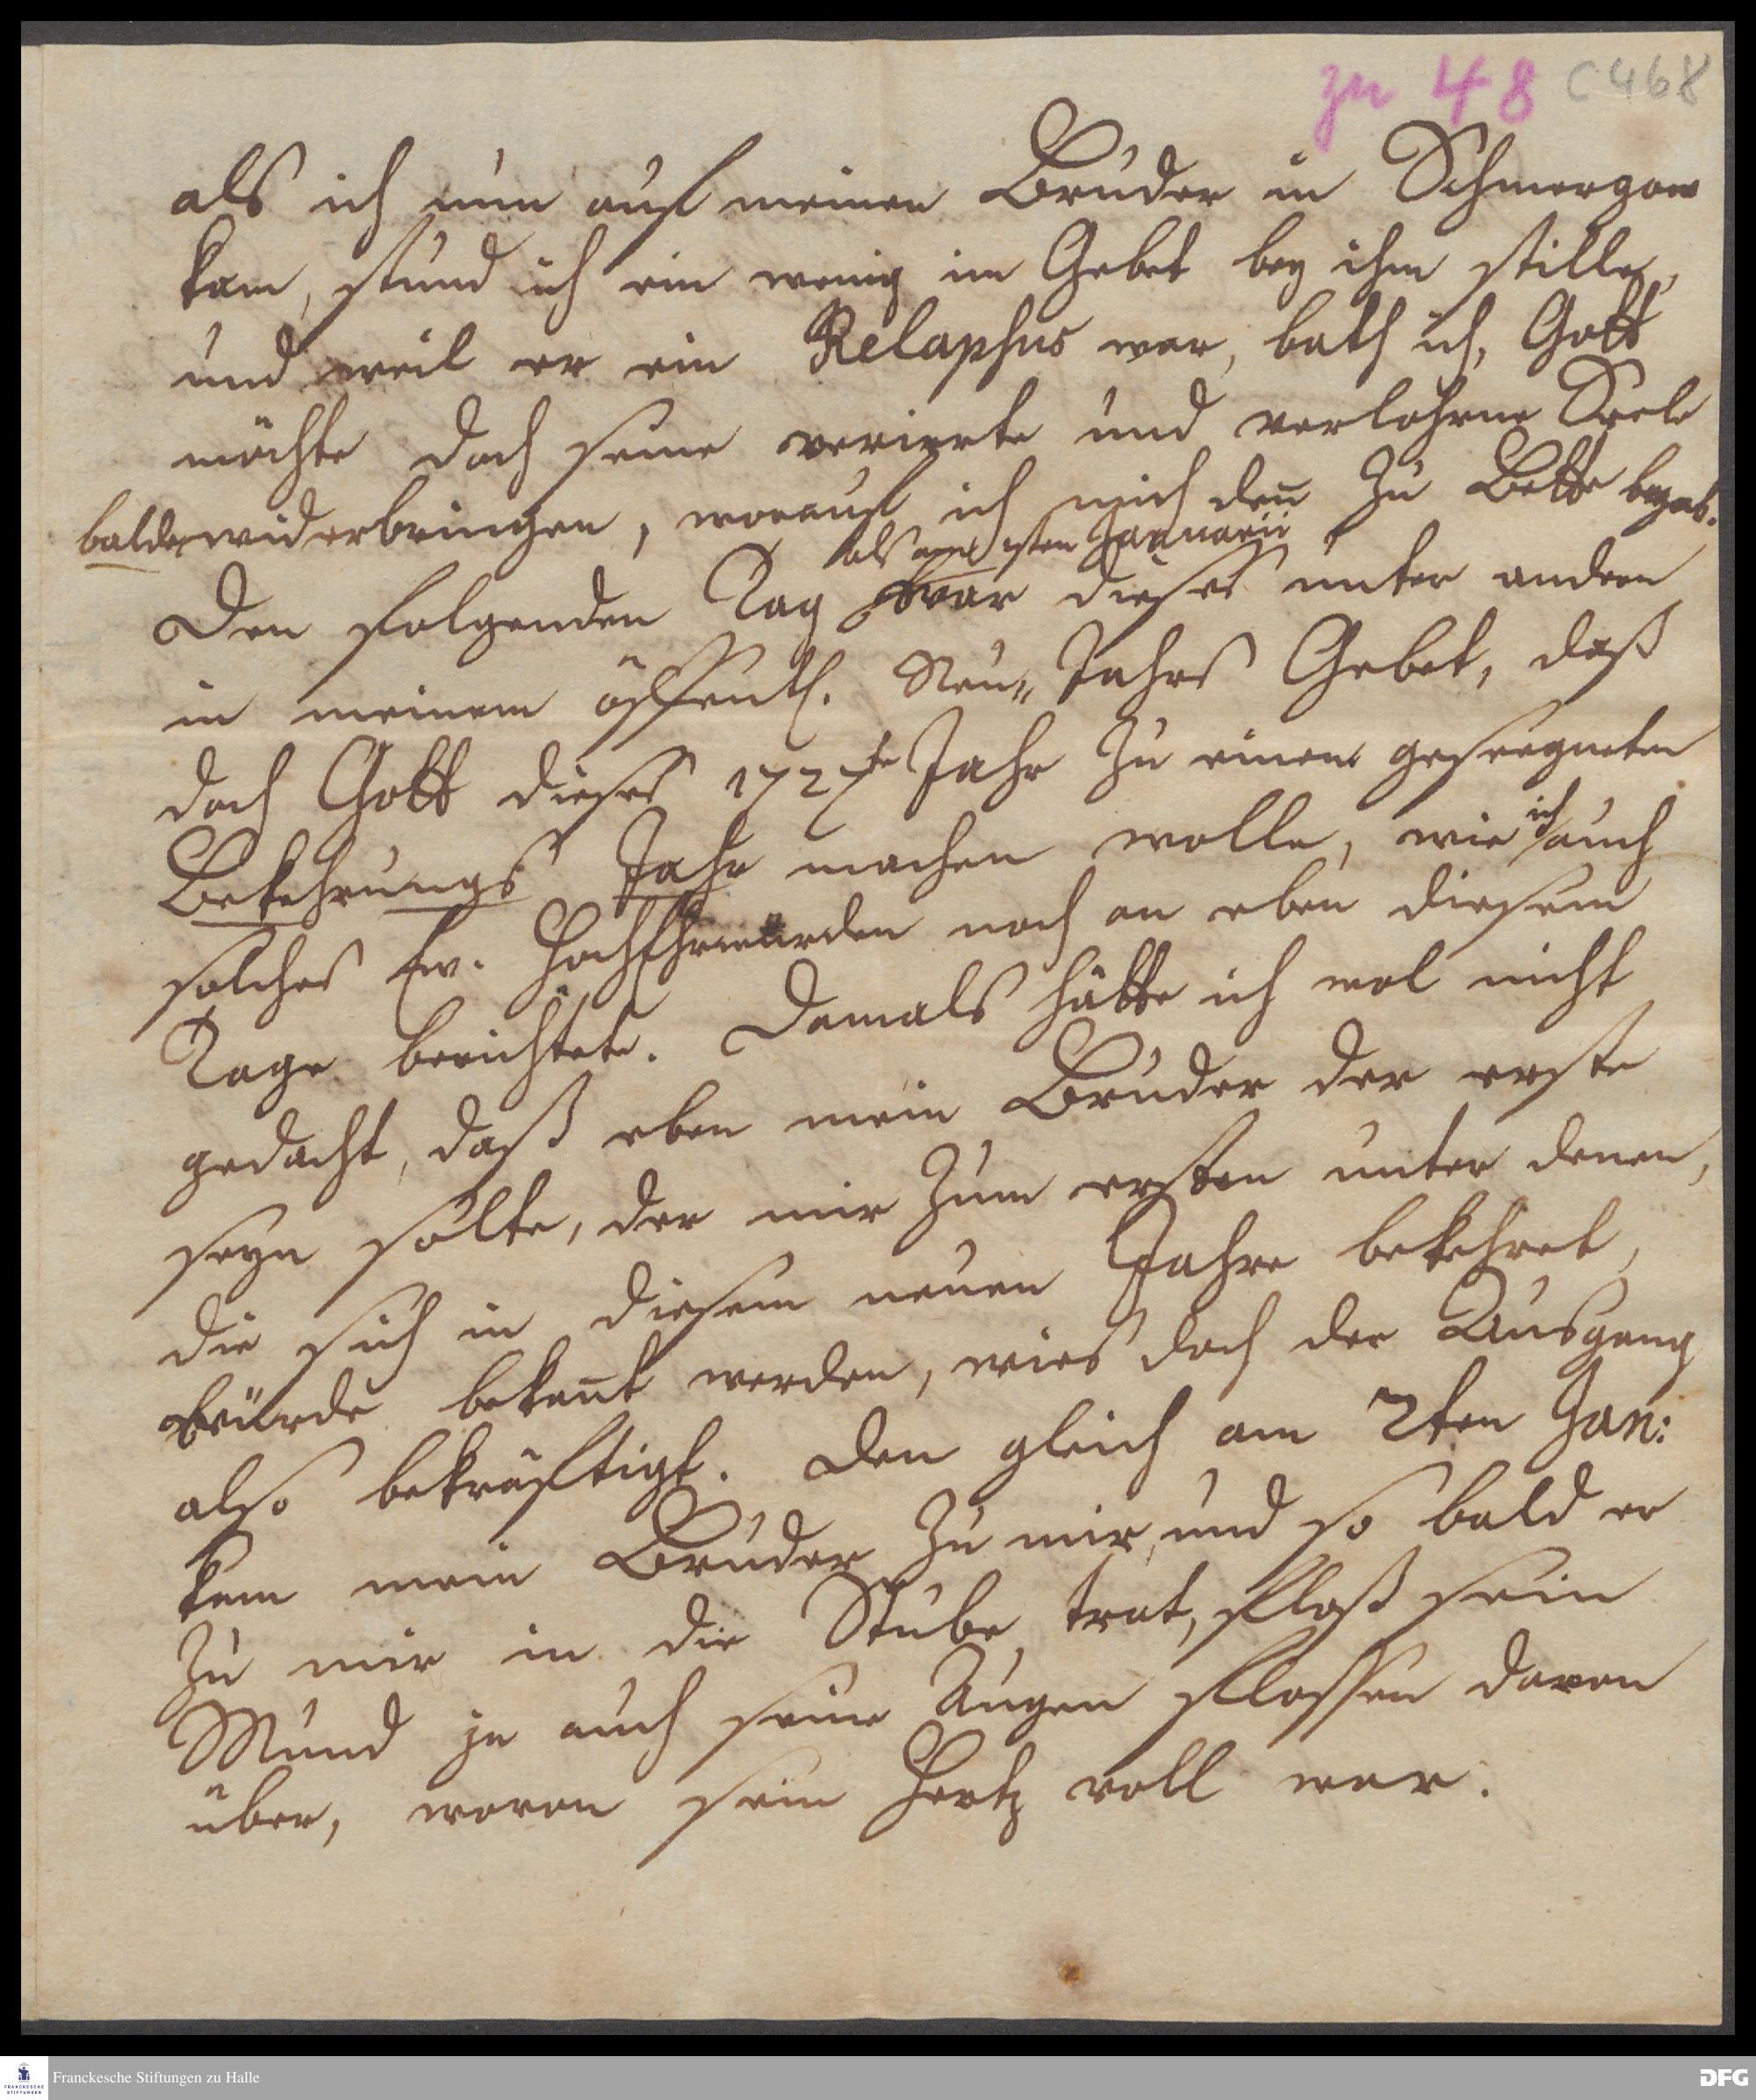 zu 48 C 468
als ich nun auf meinen Bruder in Schmergow
kam, stund ich ein wenig im Gebet bey ihm stille,
und weil er ein Relapsus war, bath ich, Gott
möchte doch seine verirrte und verlohrne Seele
balde widerbringen, worauf ich mich den̄ zu Bette begab.
als am 1sten Januarii
Den folgenden Tag war dieses unter andern
in meinem öffentl. Neu-Jahrs Gebet, daß
doch Gott dieses 1727te Jahr zu einem geseegneten
Bekehrungs Jahr machen wolle, wie ich auch
solches Ew. HochEhrwürden noch an eben diesem
Tage berichtete. Damals hätte ich wol nicht
gedacht, daß eben mein Bruder der erste
seyn solte, der mir zum ersten unter denen,
die sich in diesem neuen Jahre bekehret,
würde bekan̄t werden, wies doch der Ausgang
also bekräftigt. Den gleich am 2ten Jan:
kam mein Bruder zu mir, und so bald er
zu mir in die Stube trat, floß sein
Mund ja auch seine Augen flossen davon
über, wovon sein Hertz voll war.
Franckesche Stiftungen zu Halle
FRANCKESCHE
STIFTUNGEN
DFG